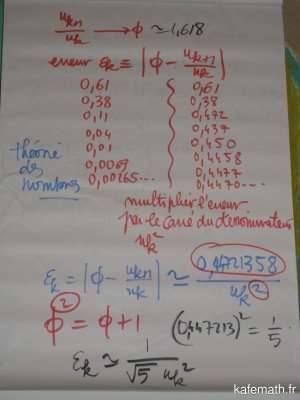 u_{k+1}/u_k → Φ ≃ 1,618
erreur ε_k = |Φ − u_{k+1}/u_k|
0,61 0,61
0,38 0,38
0,11 0,472
0,04 0,437
0,01 0,450
0,0069 0,4458
0,00265... 0,4477
0,4470...
théorie
des
nombres
multiplier l'erreur
par le carré du dénominateur
u_k²
ε_k = |Φ − u_{k+1}/u_k| ≃ 0,4721358/u_k²
Φ² = Φ + 1 (0,447213)² = 1/5.
ε_k ≃ 1/(√5 u_k²)
kafemath.fr